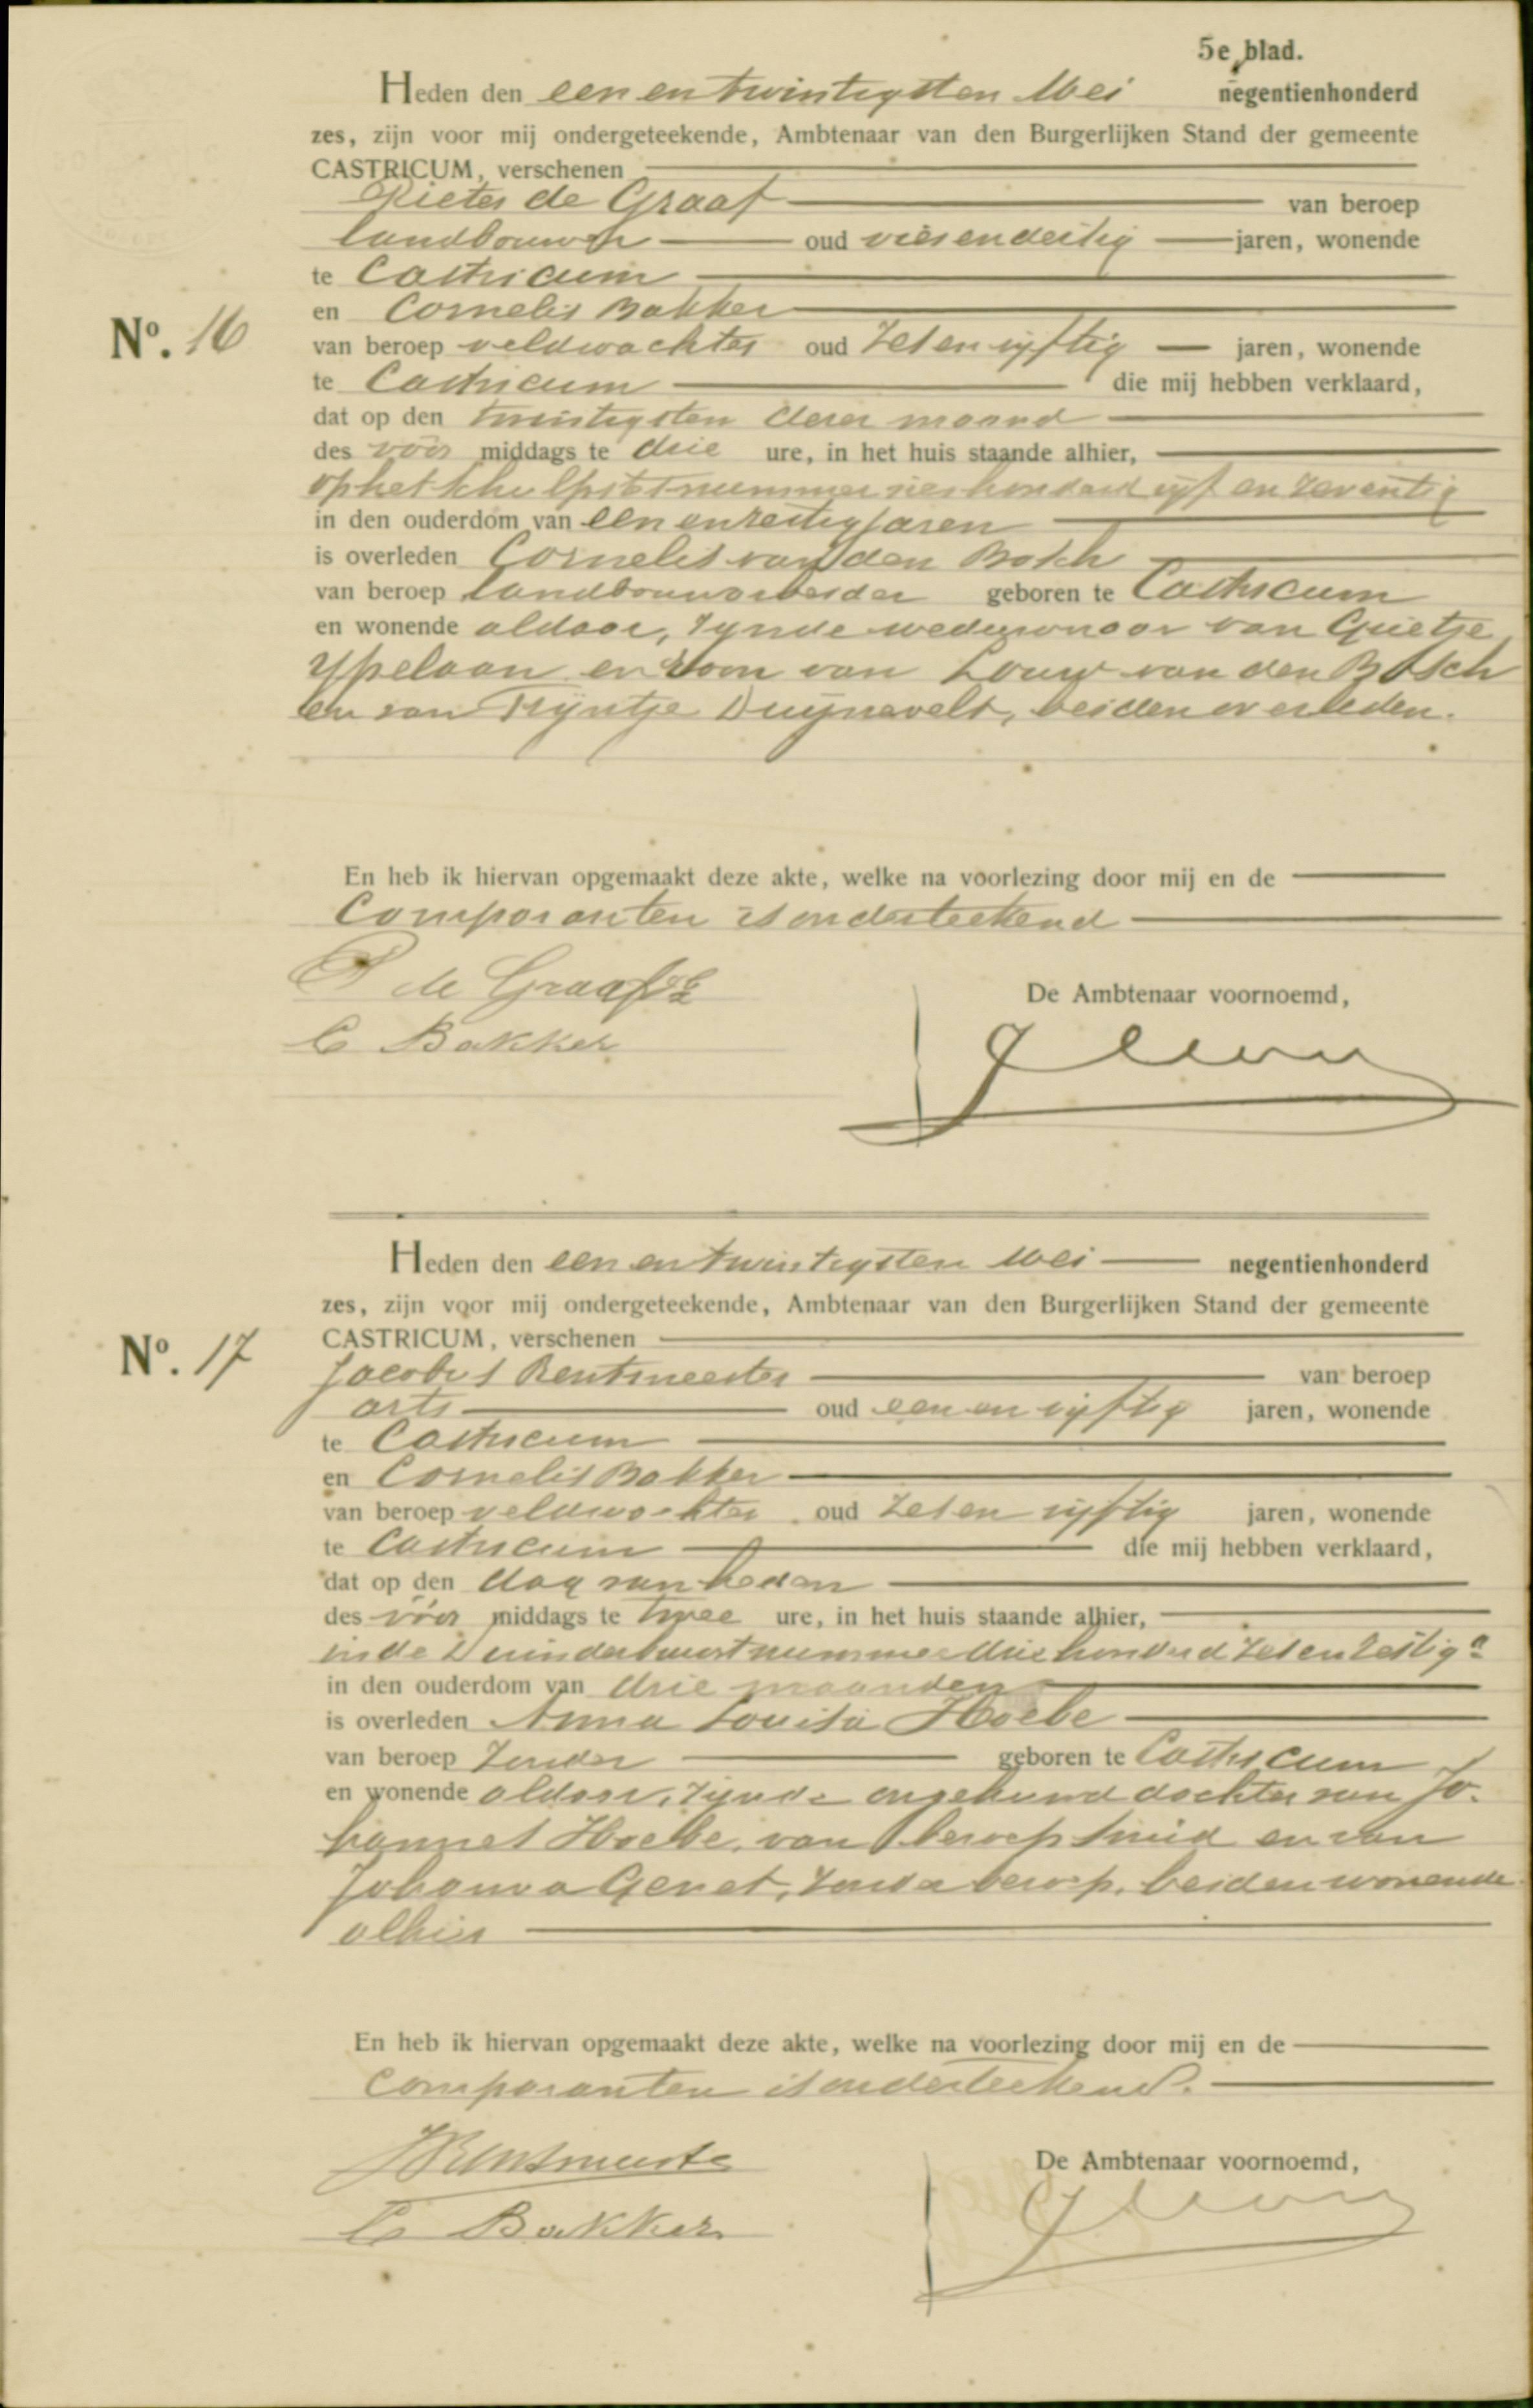 5e blad.
Heden den een en twintigsten Mei negentienhonderd
zes, zijn voor mij ondergeteekende, Ambtenaar van den Burgerlijken Stand der gemeente
CASTRICUM, verschenen
Pieter de Graaf van beroep
landbouwer oud vier en dertig jaren, wonende
te Castricum
en Cornelis Bakker
No. 16
van beroep veldwachter oud zes en vijftig jaren, wonende
te Castricum die mij hebben verklaard,
dat op den twintigsten dezer maand
des vóór middags te drie ure, in het huis staande alhier,
op het Schulpstet nummer vierhonderd vijf en zeventig
in den ouderdom van een en zestig jaren
is overleden Cornelis van den Bosch
van beroep landbouwarbeider geboren te Castricum
en wonende aldaar, zijnde weduwnaar van Grietje
Ypelaan en zoon van Louw van den Bosch
en van Trijntje Duijnevelt, beiden overleden.
En heb ik hiervan opgemaakt deze akte, welke na voorlezing door mij en de
Comparanten is onderteekend
P de Graaf
C Bakker
De Ambtenaar voornoemd,
Heden den een en twintigsten Mei negentienhonderd
zes, zijn voor mij ondergeteekende, Ambtenaar van den Burgerlijken Stand der gemeente
CASTRICUM, verschenen
No. 17
Jacobus Rentmeester van beroep
arts oud een en vijftig jaren, wonende
te Castricum
en Cornelis Bakker
van beroep veldwachter oud zes en vijftig jaren, wonende
te Castricum die mij hebben verklaard,
dat op den dag van heden
des vóór middags te twee ure, in het huis staande alhier,
in de Duinderbuurt nummer driehonderd zes en zestig a
in den ouderdom van drie maanden
is overleden Anna Louisa Hoebe
van beroep zonder geboren te Castricum
en wonende aldaar, zijnde ongehuwd dochter van Jo-
hannes Hoebe, van beroep smid en van
Johanna Genet, zonder beroep, beiden wonende
alhier
En heb ik hiervan opgemaakt deze akte, welke na voorlezing door mij en de
Comparanten is onderteekend.
JRentmeester
C Bakker
De Ambtenaar voornoemd,